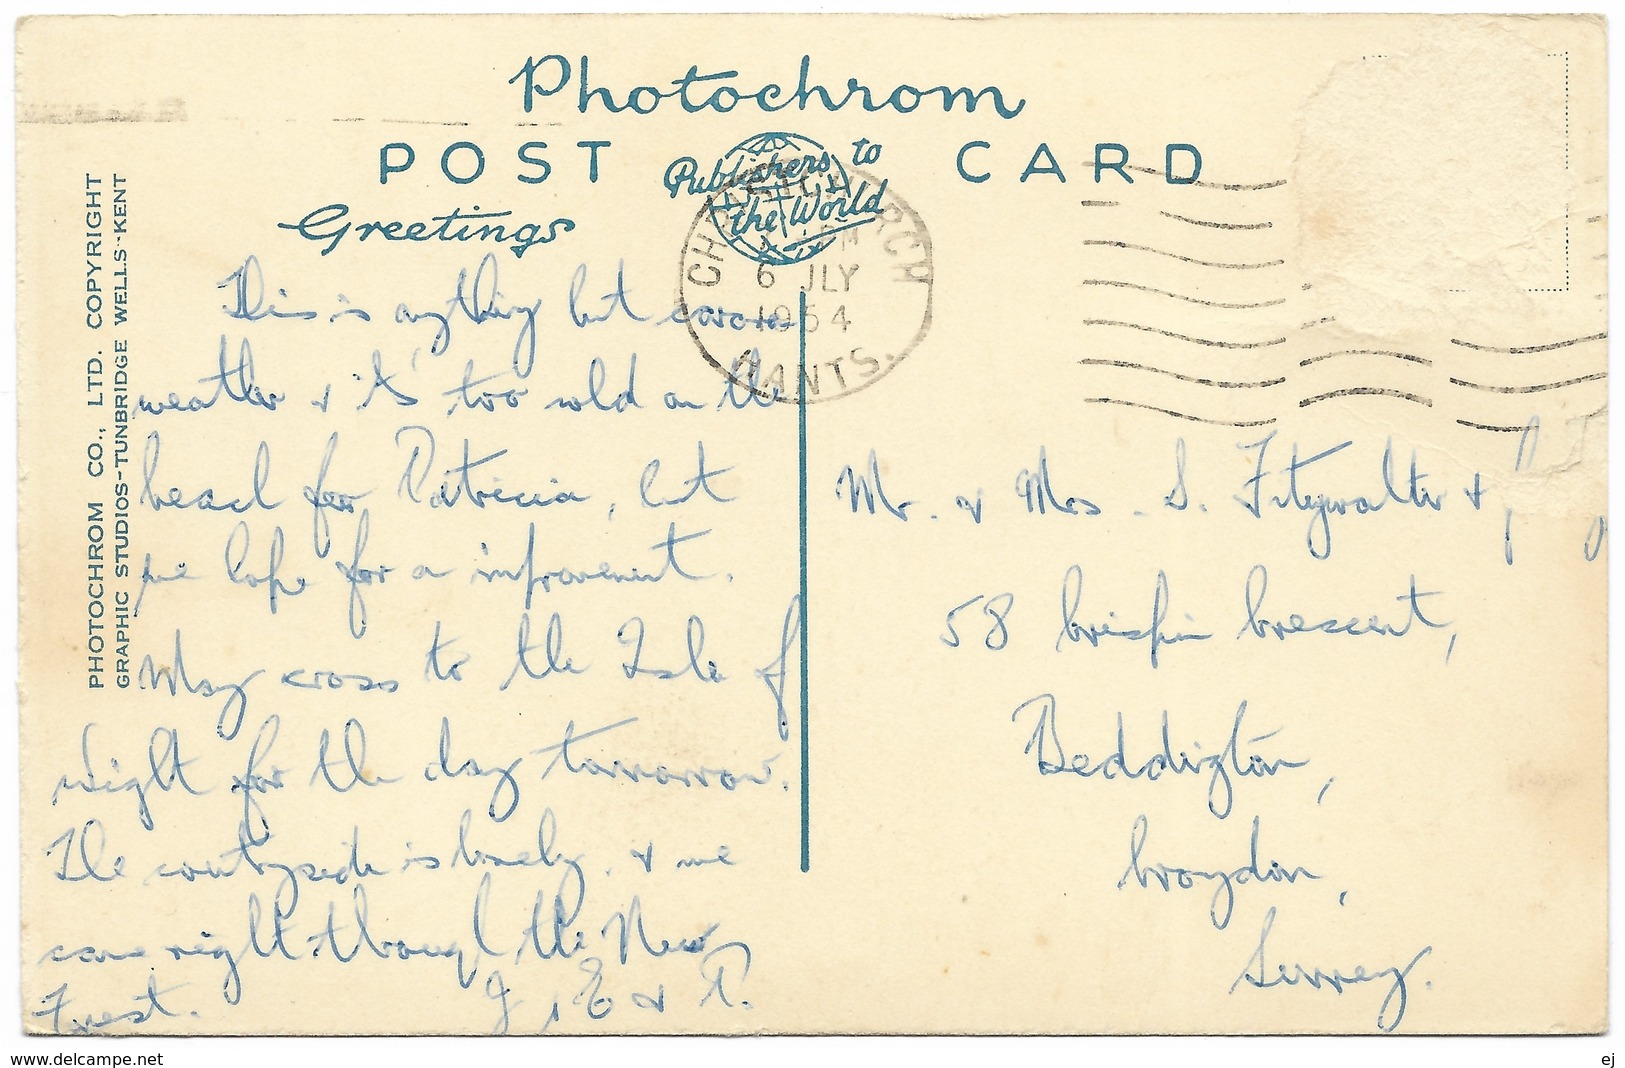 Photochrom
POST CARD
Publishers to
the World
Greetings
PHOTOCHROM CO., LTD. COPYRIGHT
GRAPHIC STUDIOS-TUNBRIDGE WELLS-KENT
CHRISTCHURCH
PM
6 JLY
1954
HANTS.
This is anything but
weather & it's too cold on the
beach for Patricia, but
we hope for a improvement.
May cross to the Isle of
Wight for the day tomorrow.
The countryside is lovely, & we
came right through the New
Forest. J, E & P.
Mr. & Mrs. S. Fitzwalter &
58 Crispin Crescent,
Beddington,
Croydon,
Surrey.
www.delcampe.net
ej